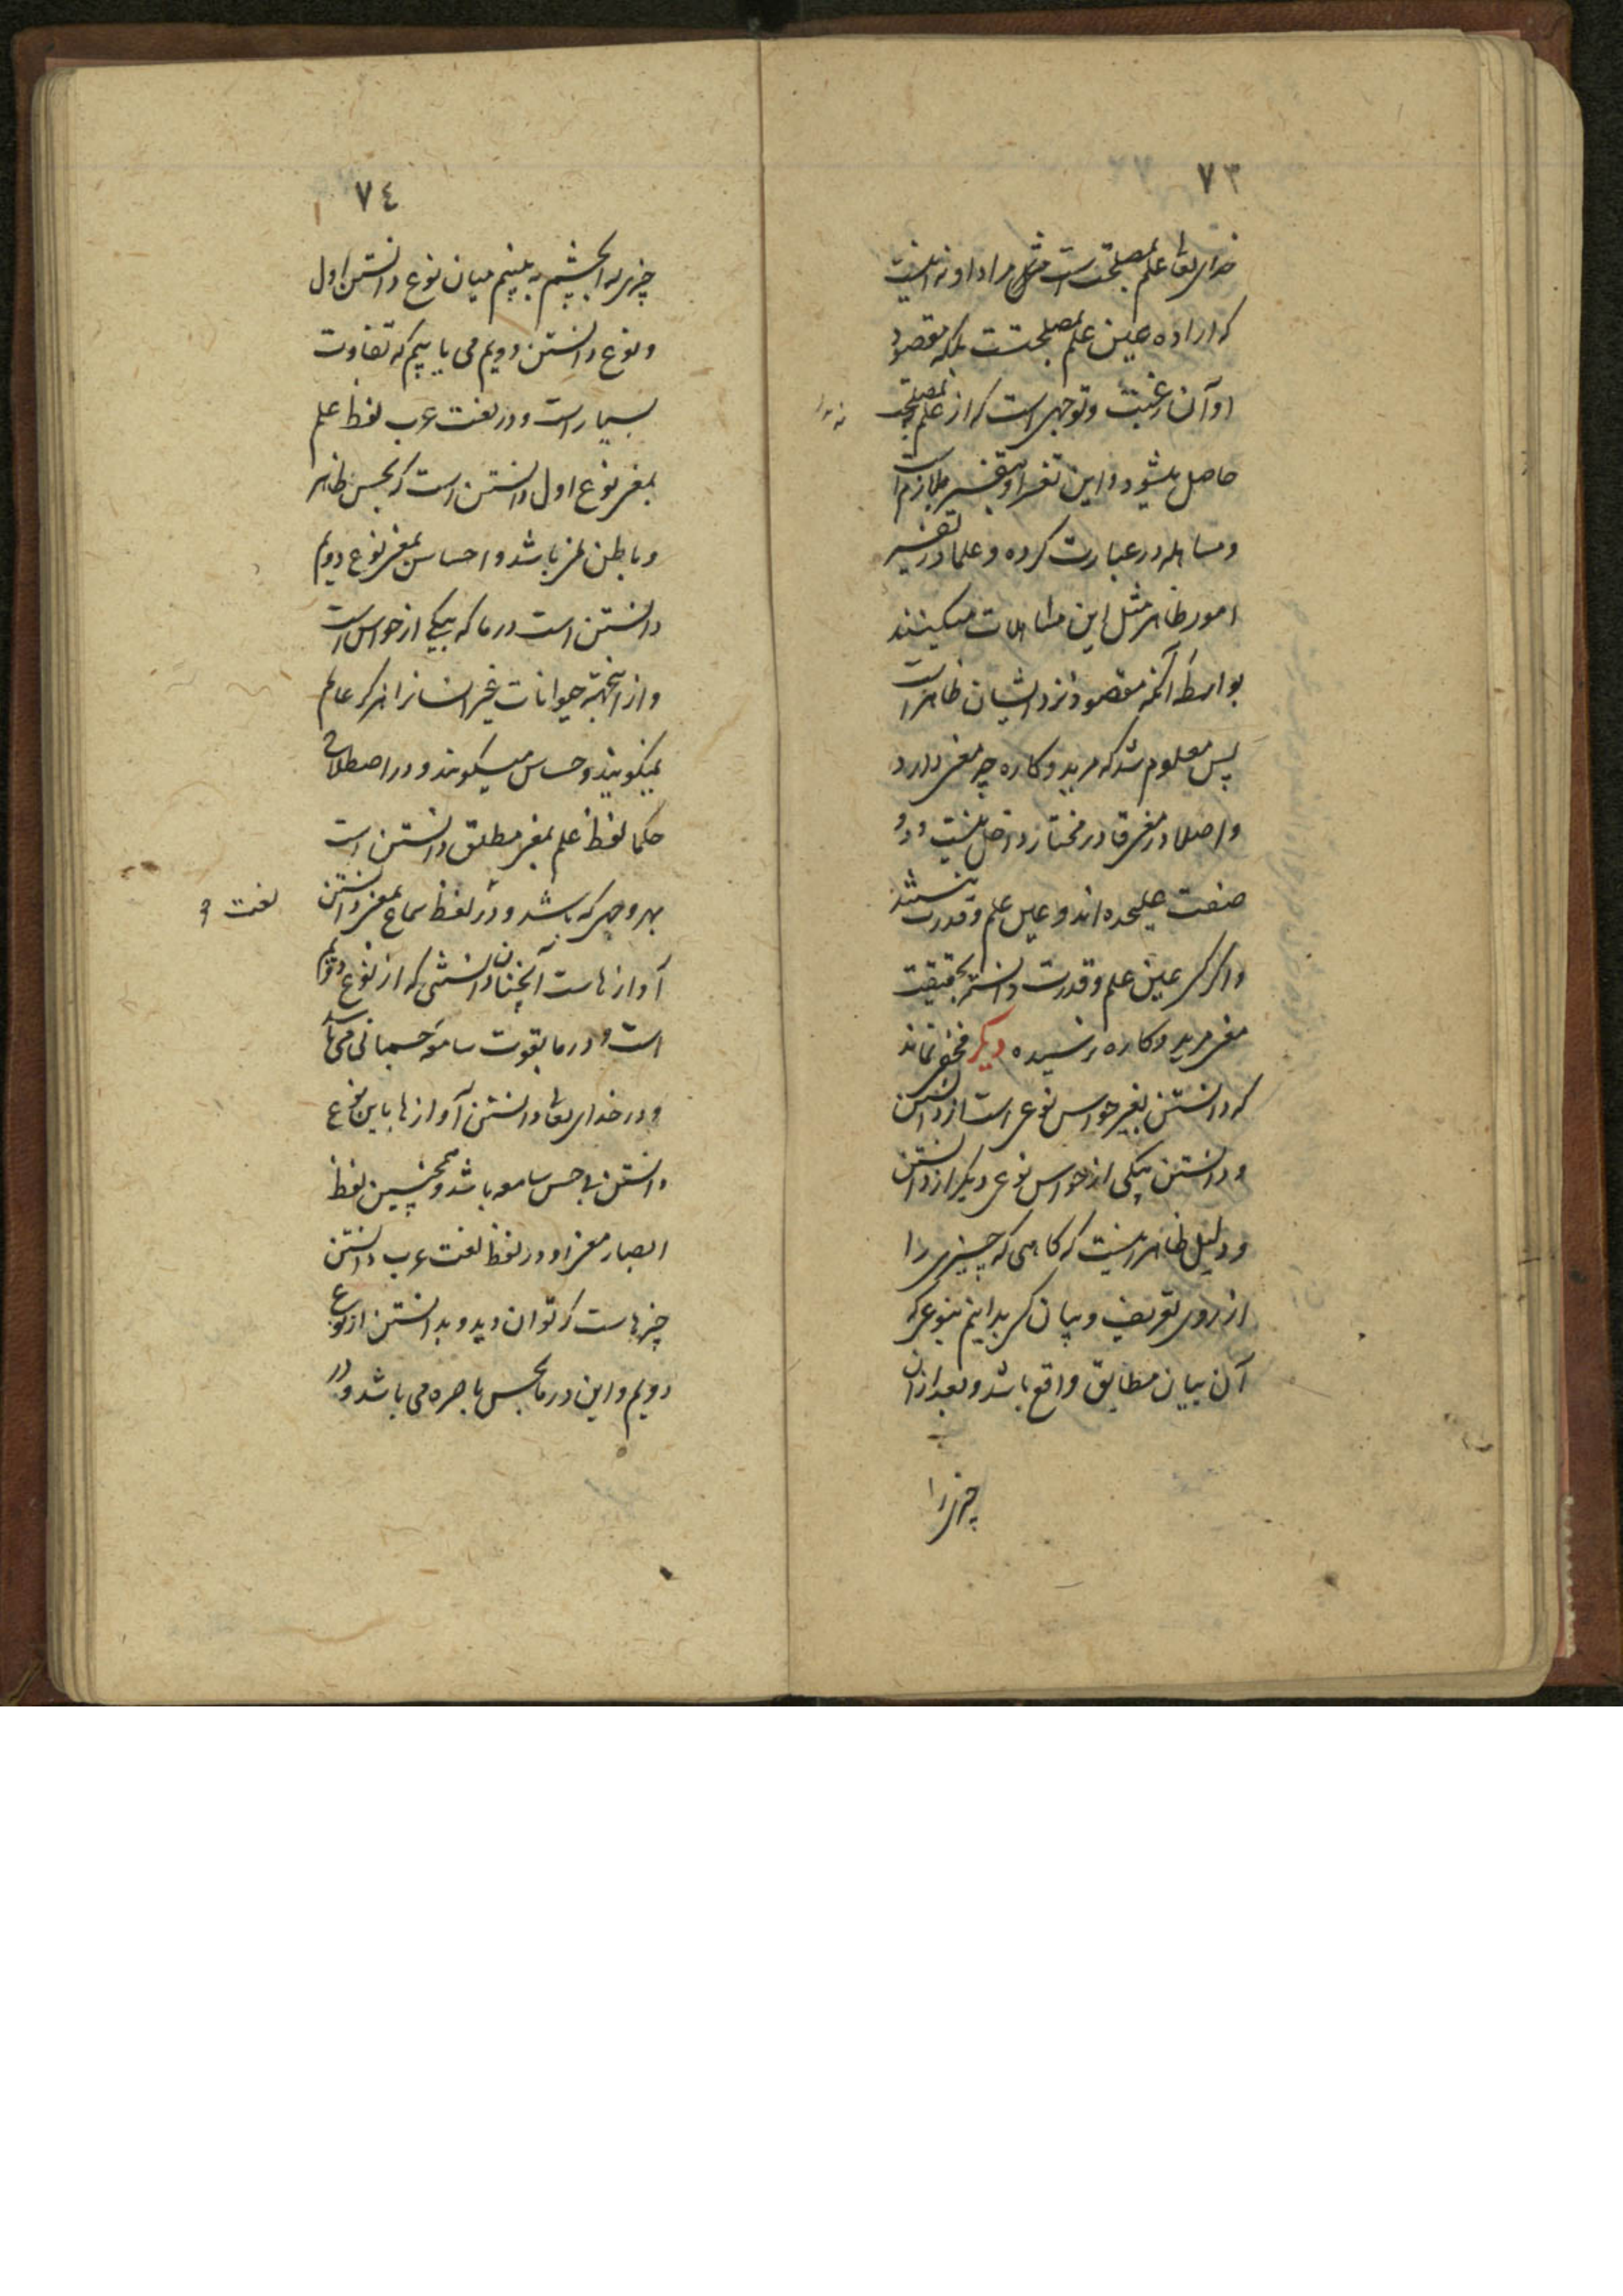 ٧٣
خدای تعا علم بمصلحت است مثلا مراد او نه اینست
که اراده عین علم بمصلحتست بلکه مقصود
او آن رغبت و توجهی است که از علم بمصلحت
حاصل میشود و این تفسیر بلازم است
و مساهله در عبارت کرده و علما در تفسیر
امور ظاهر مثل این مساهلات میکنند
بواسطه آنکه مقصود نزد ایشان ظاهر است
پس معلوم شد که مرید و کاره چه معنی دارد
و اصلا در معنی قادر مختار داخل نیست و دو
صفت علیحده اند و عین علم و قدرت نیستند
و اگر کسی عین علم و قدرت دانسته بحقیقت
معنی مرید و کاره نرسیده دیگر مخفی نماند
که دانستن بغیر حواس نوعی است از دانستن
و دانستن بیکی از حواس نوعی دیگر از دانستن
و دلیل ظاهر اینست که گاهی که چیزی را
از روی تعریف و بیان کسی بدانیم بنوعی که
آن بیان مطابق واقع باشد و بعد از آن
چیزی را
٧٤
چیزی را بچشم به بینیم میان نوع دانستن اول
و نوع دانستن دویم می یابیم که تفاوت
بسیار است و در لغت عرب لفظ علم
بمعنی نوع اول دانستن است که بحس ظاهر
و باطن نمی باشد و احساس بمعنی نوع دویم
دانستن است در ما که بیکی از حواس است
و از اینجهة حیوانات غیر انسانرا هرگز عالم
نمیگویند و حساس میگویند و در اصطلاح
حکما لفظ علم بمعنی مطلق دانستن است
بهر وجهی که باشد و در لفظ سماع بمعنی دانستن
لغت
آوازهاست آنچنان دانستنی که از نوع دویم
است و در ما بقوت سامعه جسمانی می باشد
و در خدای تعا دانستن آوازها باین نوع
دانستن بی حس سامعه باشد و همچنین لفظ
ابصار معنی او در لفظ لغت عرب دانستن
چیزهاست که توان دید و بدانستن از نوع
دویم و این در ما بحس باصره می باشد و در